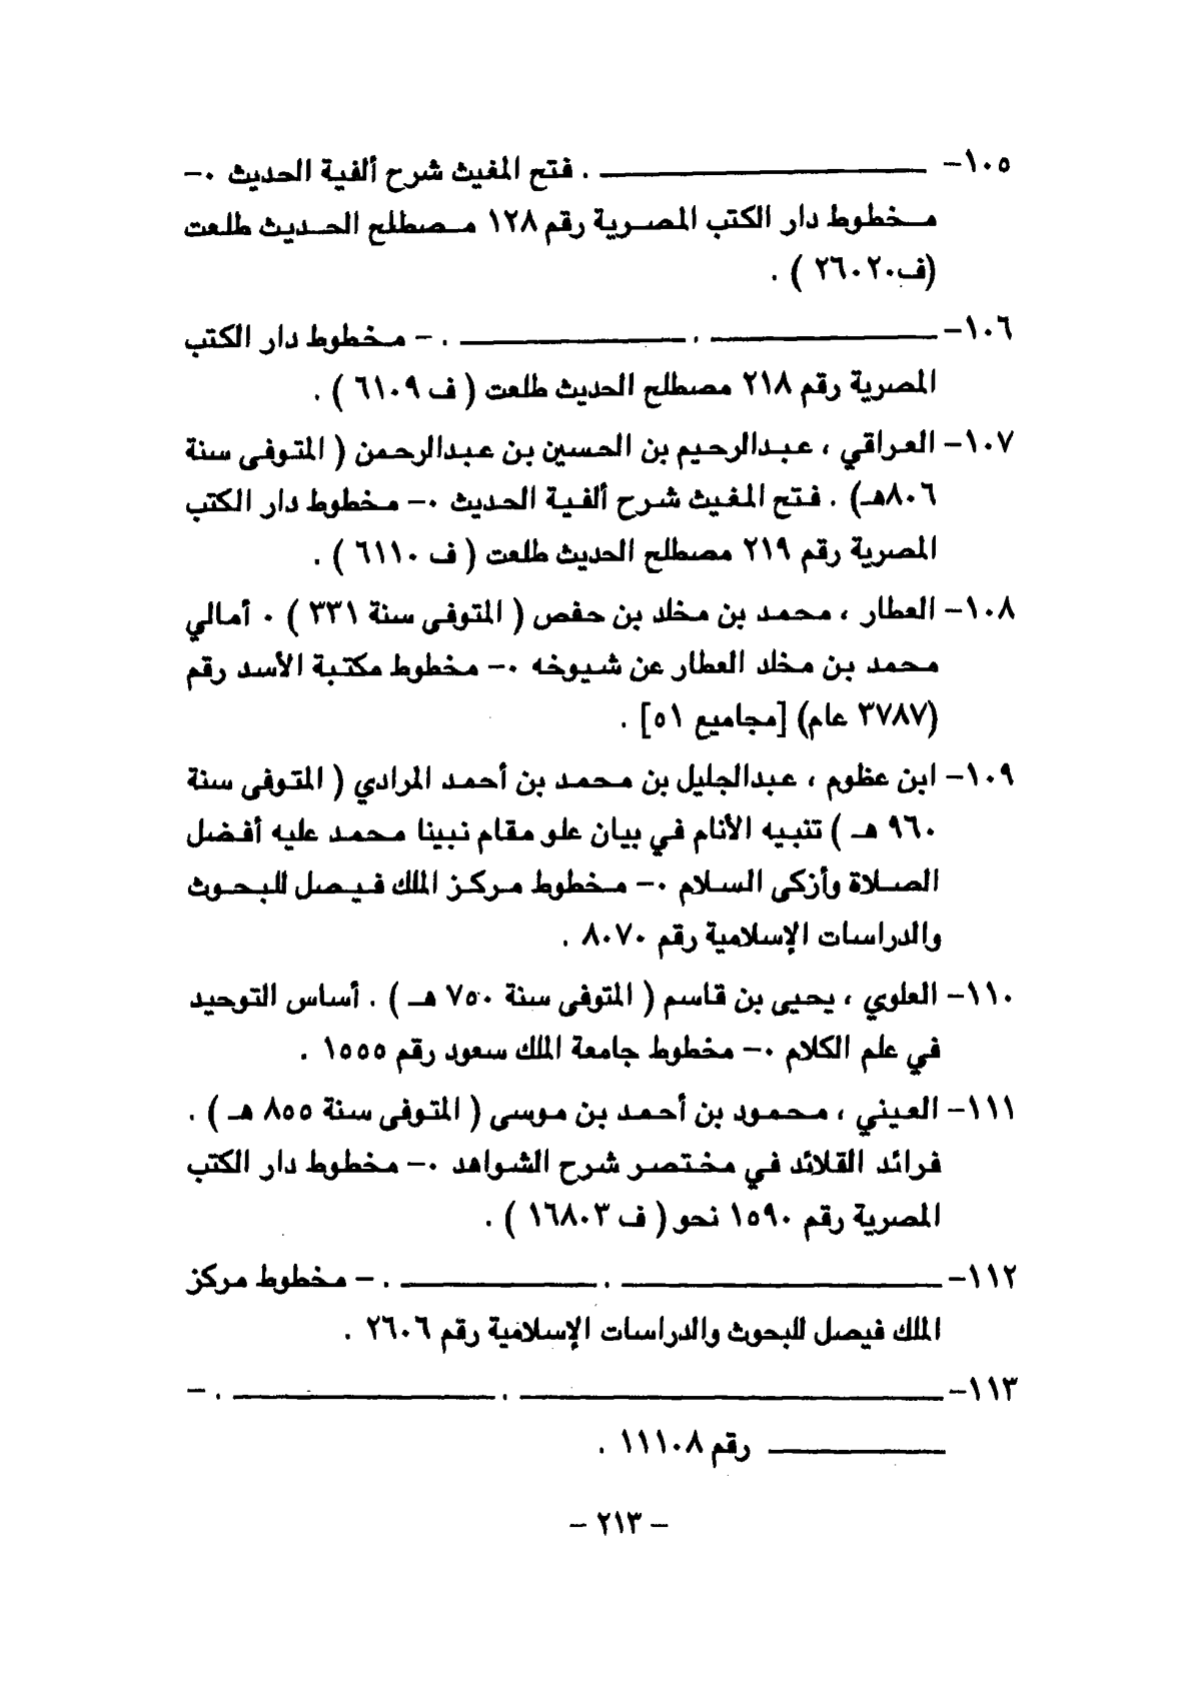 ١٠٥- ــــــــــــــــــــ . فتح المغيث شرح ألفية الحديث ٠-
مخطوط دار الكتب المصرية رقم ١٢٨ مصطلح الحديث طلعت
(ف٢٦٠٢٠ ) .
١٠٦- ــــــــــــــــــــ . ــــــــــــــــــــ . - مخطوط دار الكتب
المصرية رقم ٢١٨ مصطلح الحديث طلعت ( ف ٦١٠٩ ) .
١٠٧- العراقي ، عبدالرحيم بن الحسين بن عبدالرحمن ( المتوفى سنة
٨٠٦هـ) . فتح المغيث شرح ألفية الحديث ٠- مخطوط دار الكتب
المصرية رقم ٢١٩ مصطلح الحديث طلعت ( ف ٦١١٠ ) .
١٠٨- العطار ، محمد بن مخلد بن حفص ( المتوفى سنة ٣٣١ ) ٠ أمالي
محمد بن مخلد العطار عن شيوخه ٠- مخطوط مكتبة الأسد رقم
(٣٧٨٧ عام) [مجاميع ٥١] .
١٠٩- ابن عظوم ، عبدالجليل بن محمد بن أحمد المرادي ( المتوفى سنة
٩٦٠ هـ ) تنبيه الأنام في بيان علو مقام نبينا محمد عليه أفضل
الصلاة وأزكى السلام ٠- مخطوط مركز الملك فيصل للبحوث
والدراسات الإسلامية رقم ٨٠٧٠ .
١١٠- العلوي ، يحيى بن قاسم ( المتوفى سنة ٧٥٠ هـ ) . أساس التوحيد
في علم الكلام ٠- مخطوط جامعة الملك سعود رقم ١٥٥٥ .
١١١- العيني ، محمود بن أحمد بن موسى ( المتوفى سنة ٨٥٥ هـ ) .
فرائد القلائد في مختصر شرح الشواهد ٠- مخطوط دار الكتب
المصرية رقم ١٥٩٠ نحو ( ف ١٦٨٠٣ ) .
١١٢- ــــــــــــــــــــ . ــــــــــــــــــــ . - مخطوط مركز
الملك فيصل للبحوث والدراسات الإسلامية رقم ٢٦٠٦ .
١١٣- ــــــــــــــــــــ . ــــــــــــــــــــ . -
ــــــــــــــــــــ رقم ١١١٠٨ .
- ٢١٣ -